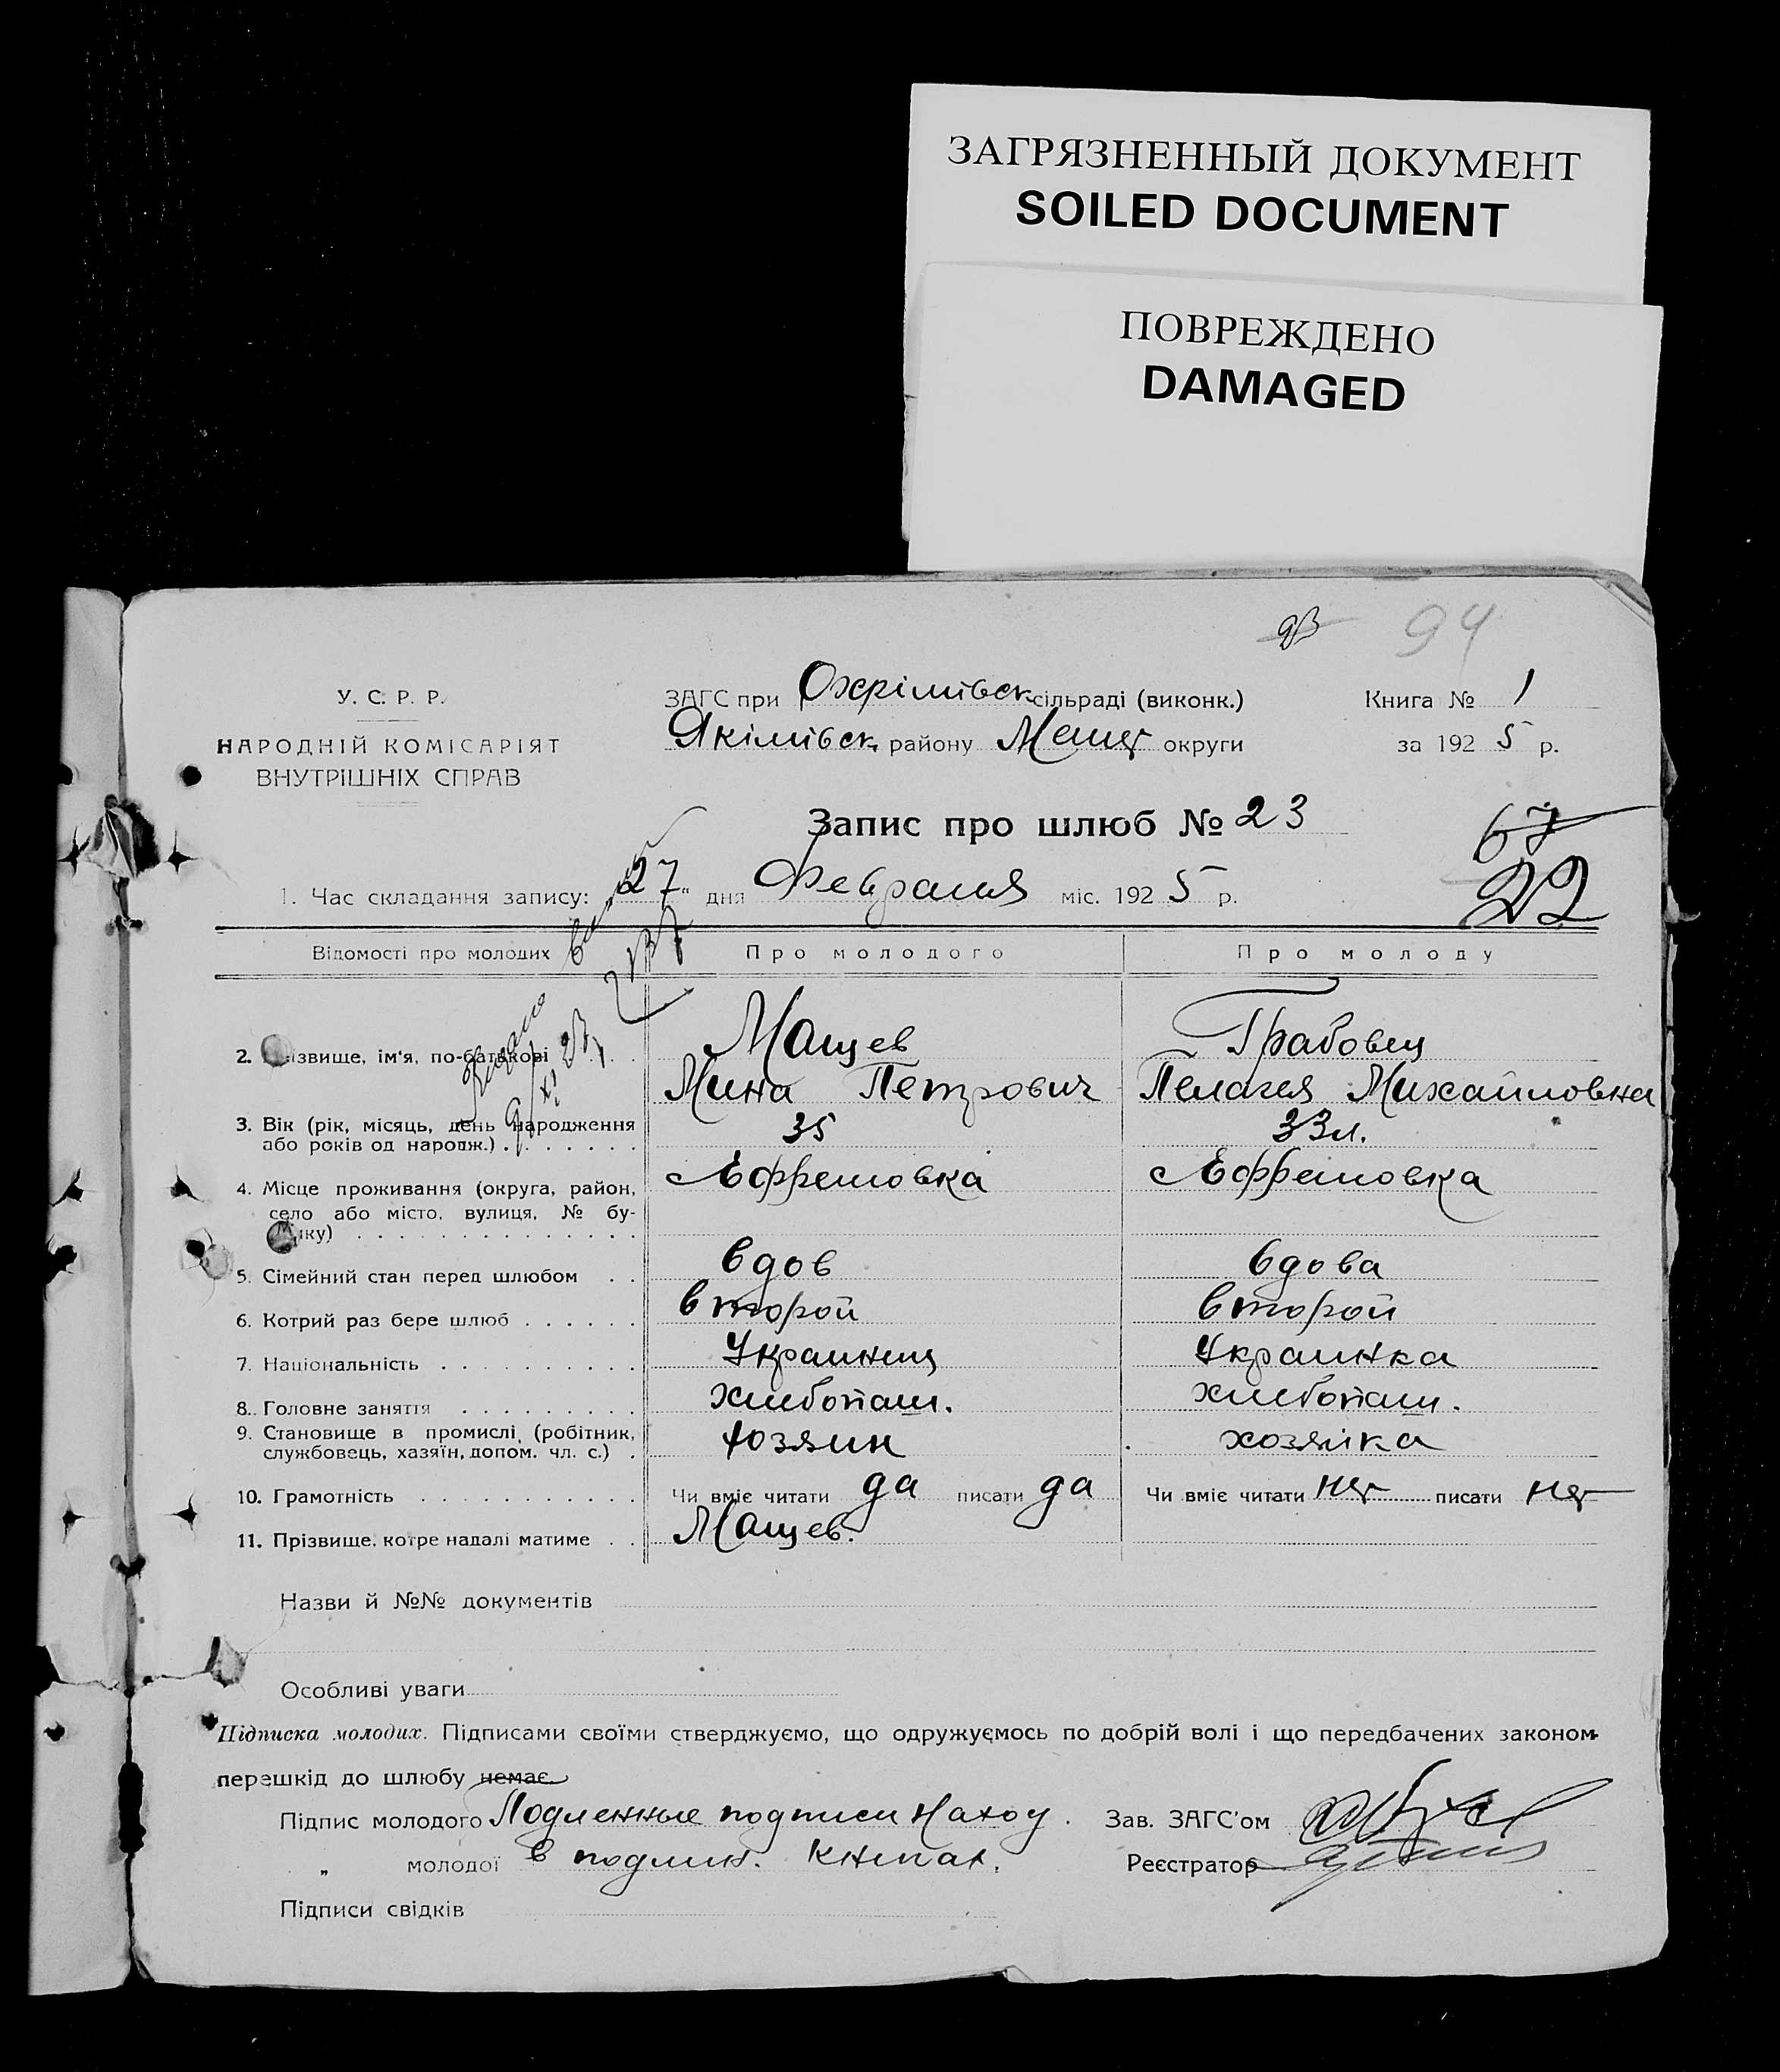 ЗАГРЯЗНЕННЫЙ ДОКУМЕНТ
SOILED DOCUMENT
ПОВРЕЖДЕНО
DAMAGED
93 94
У. С. Р. Р.
НАРОДНІЙ КОМІСАРІЯТ
ВНУТРІШНІХ СПРАВ
ЗАГС при Охрімівск. сільраді (виконк.) Книга № 1
Якімівск. району Меліт округи за 1925 р.
Запис про шлюб № 23
67
22
1. Час складання запису: „27" дня Февраля міс. 1925 р.
Відомості про молодих Про молодого Про молоду
2. Прізвище, ім'я, по-батькові Мацев Грабовец
Мина Петрович Пелагея Михайловна
3. Вік (рік, місяць, день народження 35 33 л.
або років од народж.)
4. Місце проживання (округа, район, Ефремовка Ефремовка
село або місто, вулиця, № бу-
динку)
5. Сімейний стан перед шлюбом вдов вдова
6. Котрий раз бере шлюб второй второй
7. Національність Украинец Украинка
8. Головне заняття хлебопаш. хлебопаш.
9. Становище в промислі, (робітник, хозяин хозяйка
службовець, хазяїн, допом. чл. с.)
10. Грамотність Чи вміє читати да писати да Чи вміє читати нет писати нет
11. Прізвище, котре надалі матиме Мацев.
Назви й №№ документів
Особливі уваги
Підписка молодих. Підписами своїми стверджуємо, що одружуємось по добрій волі і що передбачених законом
перешкід до шлюбу немає.
Підпис молодого Подленные подписи наход. Зав. ЗАГС'ом
„ молодої в подлин. книгах. Реєстратор
Підписи свідків